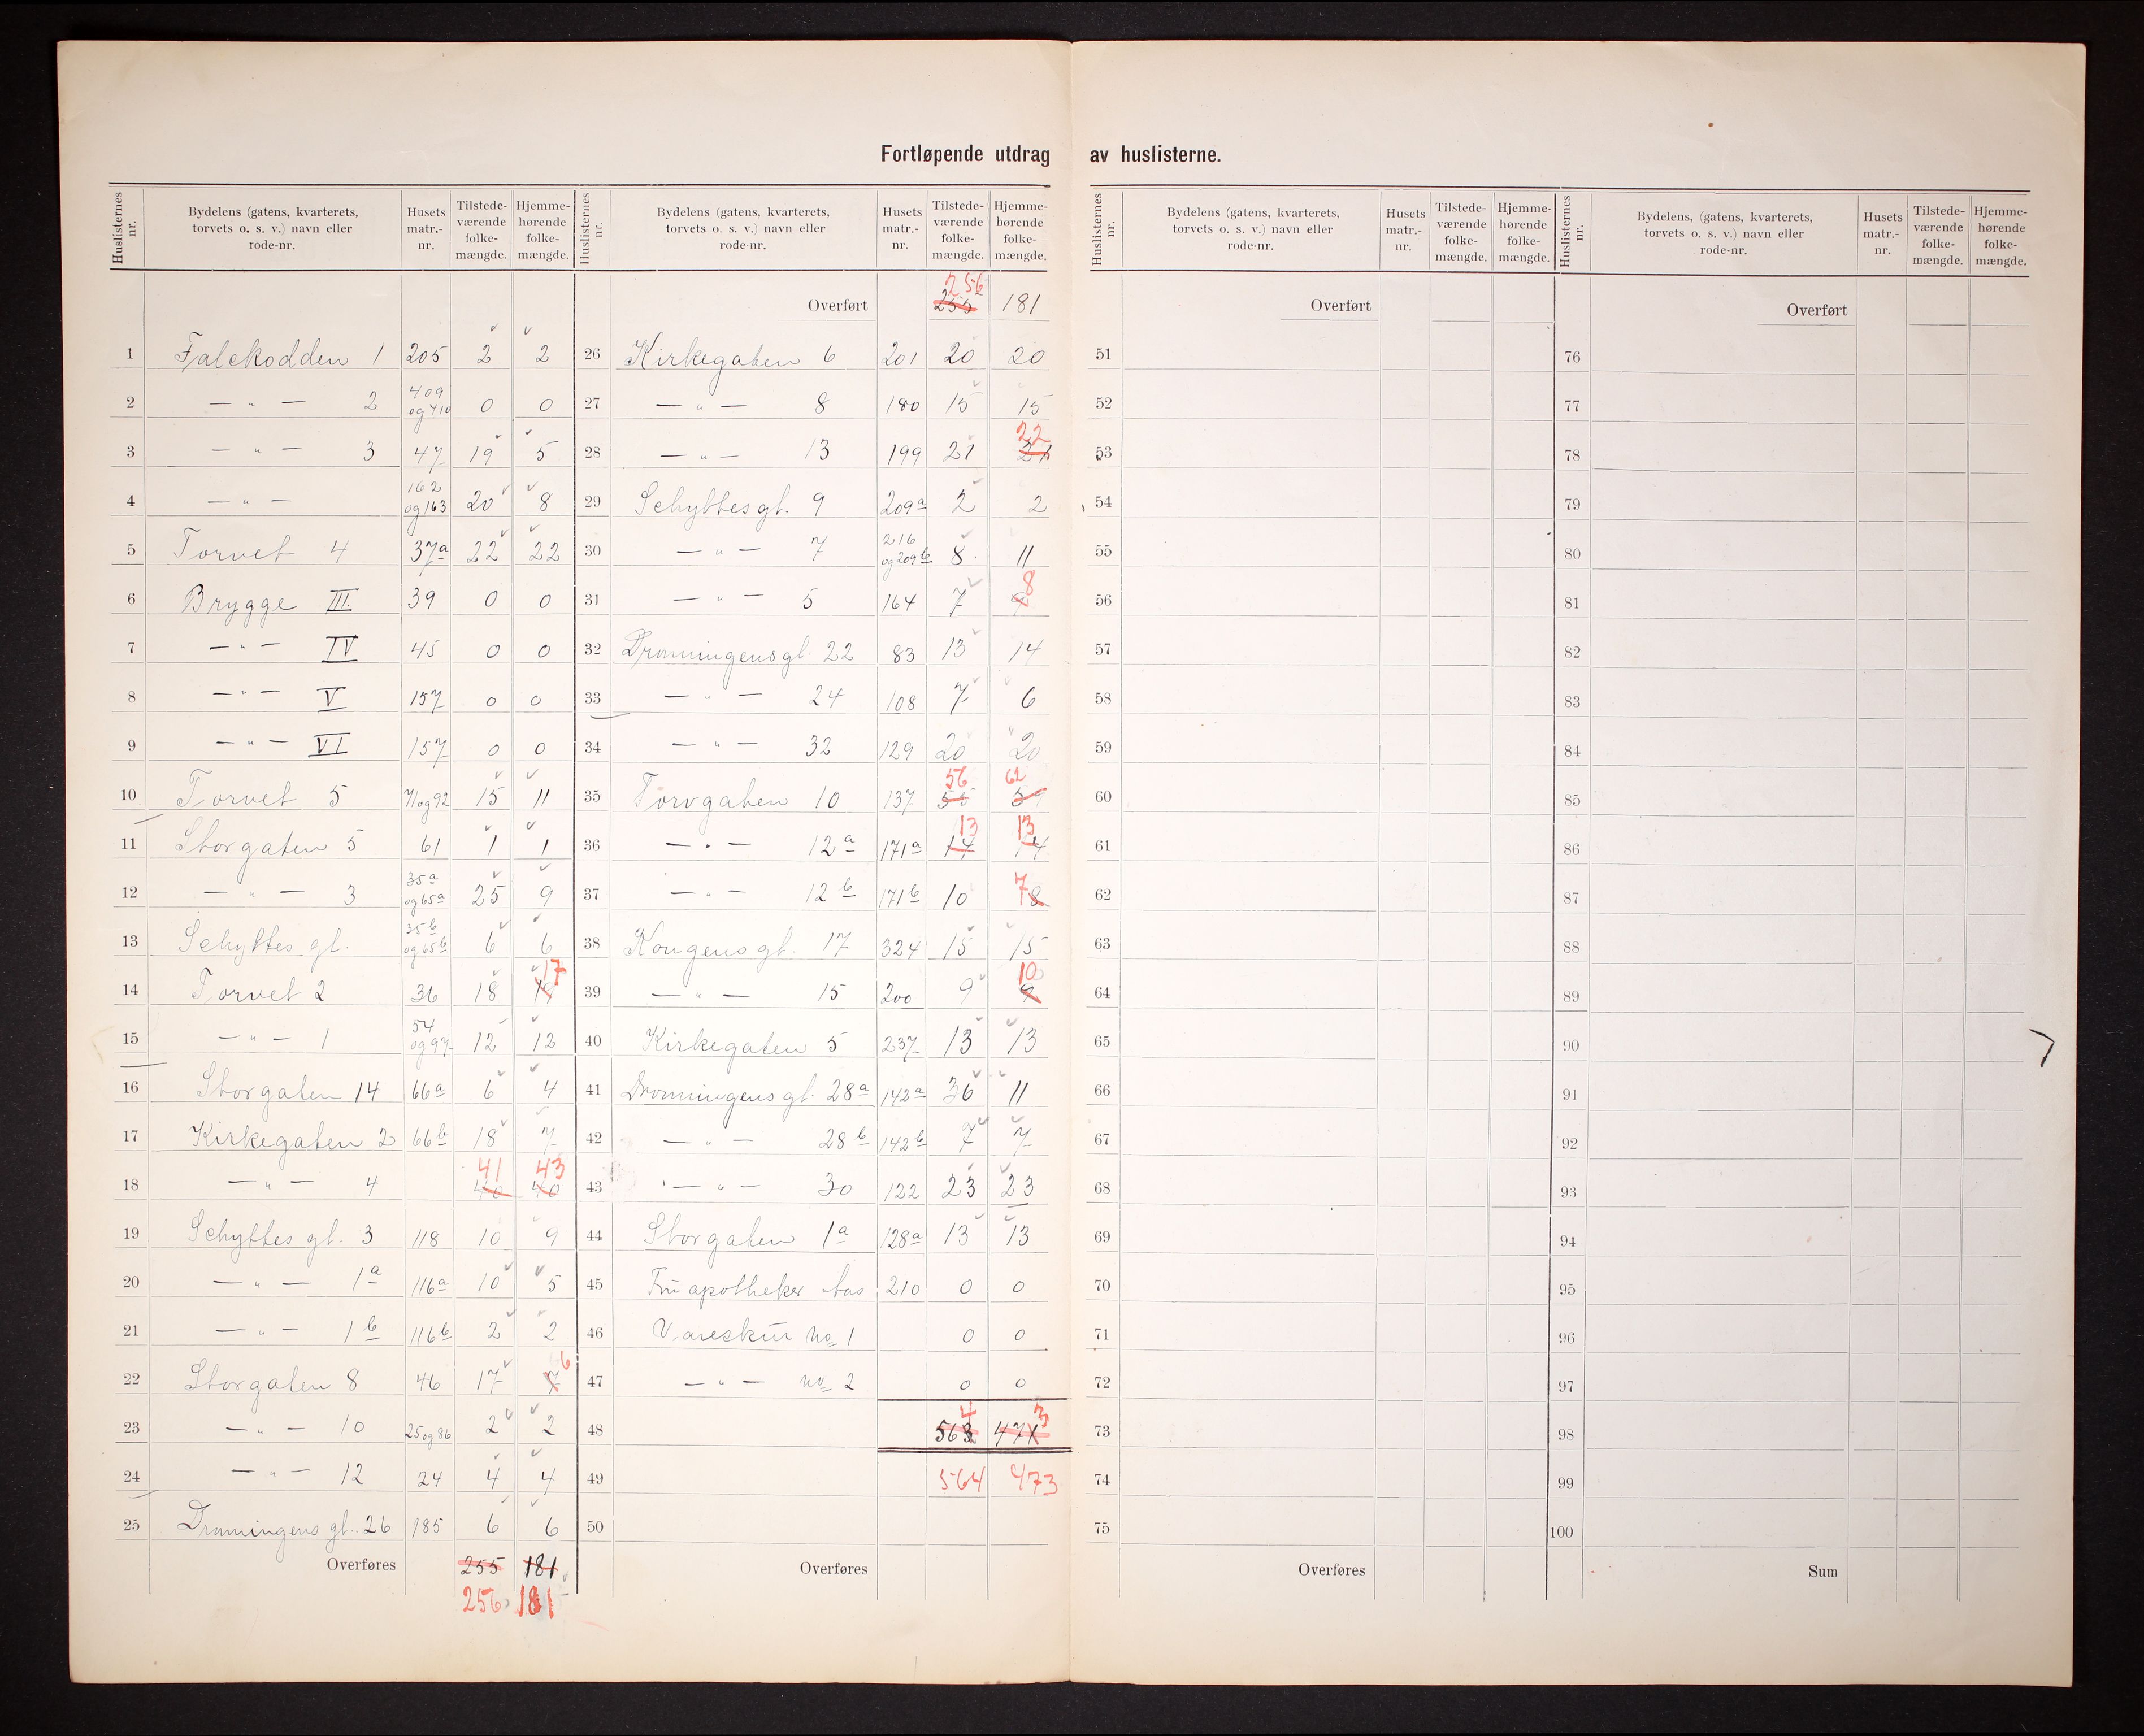 Fortløpende utdrag av huslisterne.
Huslisternes nr. Bydelens (gatens, kvarterets, torvets o. s. v.) navn eller rode-nr. Husets matr.-nr. Tilstede-værende folke-mængde. Hjemme-hørende folke-mængde.
1 Falekodden 1 205 2 2
2 — „ — 2 409 og 410 0 0
3 — „ — 3 47 19 5
4 — „ — 162 og 163 20 8
5 Torvet 4 37a 22 22
6 Brygge III. 39 0 0
7 — „ — IV 45 0 0
8 — „ — V 157 0 0
9 — „ — VI 157 0 0
10 Torvet 5 71 og 92 15 11
11 Storgaten 5 61 1 1
12 — „ — 3 35a og 65a 25 9
13 Schyttes gt. 35b og 65b 6 6
14 Torvet 2 36 18 17
15 — „ — 1 54 og 97 12 12
16 Storgaten 14 66a 6 4
17 Kirkegaten 2 66b 18 7
18 — „ — 4 40 41 40 43
19 Schyttes gt. 3 118 10 9
20 — „ — 1a 116a 10 5
21 — „ — 1b 116b 2 2
22 Storgaten 8 46 17 7 6
23 — „ — 10 25 og 86 2 2
24 — „ — 12 24 4 4
25 Dronningens gt. 26 185 6 6
Overføres 255 181
256 181
Huslisternes nr. Bydelens (gatens, kvarterets, torvets o. s. v.) navn eller rode-nr. Husets matr.-nr. Tilstede-værende folke-mængde. Hjemme-hørende folke-mængde.
Overført 255 256 181
26 Kirkegaten 6 201 20 20
27 — „ — 8 180 15 15
28 — „ — 13 199 21 21 22
29 Schyttes gt. 9 209a 2 2
30 — „ — 7 216 og 209b 8 11
31 — „ — 5 164 7 8
32 Dronningens gt. 22 83 13 14
33 — „ — 24 108 7 6
34 — „ — 32 129 20 20
35 Torvgaten 10 137 56 62
36 — „ — 12a 171a 14 13 14 13
37 — „ — 12b 171b 10 8 7
38 Kongens gt. 17 324 15 15
39 — „ — 15 200 9 9 10
40 Kirkegaten 5 237 13 13
41 Dronningens gt. 28a 142a 36 11
42 — „ — 28b 142b 7 7
43 — „ — 30 122 23 23
44 Storgaten 1a 128a 13 13
45 Fru apotheker Aas 210 0 0
46 Vareskur No 1 0 0
47 — „ — No 2 0 0
48 563 4 471 3
49 564 473
50
Overføres
Huslisternes nr. Bydelens (gatens, kvarterets, torvets o. s. v.) navn eller rode-nr. Husets matr.-nr. Tilstede-værende folke-mængde. Hjemme-hørende folke-mængde.
Overført
51
52
53
54
55
56
57
58
59
60
61
62
63
64
65
66
67
68
69
70
71
72
73
74
75
Overføres
Huslisternes nr. Bydelens, (gatens, kvarterets, torvets o. s. v.) navn eller rode-nr. Husets matr.-nr. Tilstede-værende folke-mængde. Hjemme-hørende folke-mængde.
Overført
76
77
78
79
80
81
82
83
84
85
86
87
88
89
90
91
92
93
94
95
96
97
98
99
100
Sum